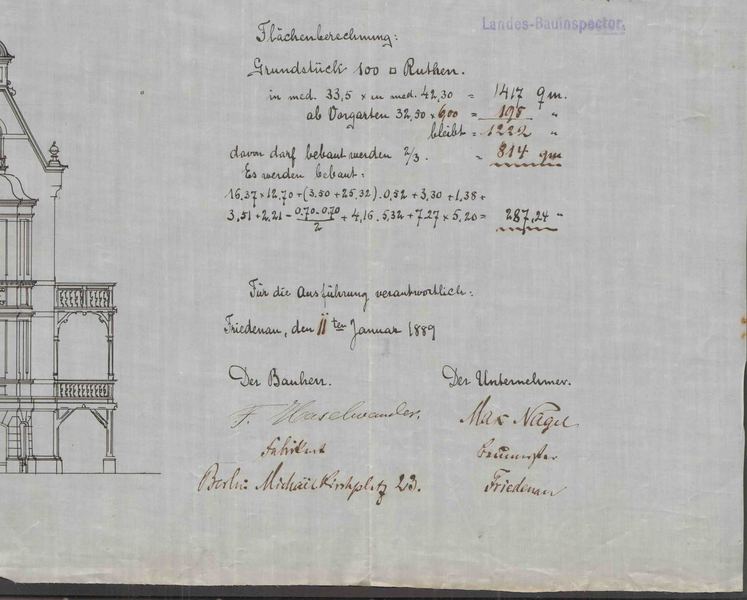 Landes-Bauinspector.
Flächenberechnung:
Grundstück 100 □ Ruthen.
in med. 33,5 × in med. 42,30 = 1417 qm.
ab Vorgarten 32,50 × 6,00 = 195 "
bleibt = 1222 "
davon darf bebaut werden 2/3. = 814 qm
Es werden bebaut:
16.37 × 12.70 + (3.50 + 25,32) . 0,52 + 3,30 + 1,38 +
3,51 + 2.21 - 0.70 . 0.70 / 2 + 4,16 . 5,32 + 7.27 × 5,20 = 287,24 "
Für die Ausführung verantwortlich:
Friedenau, den 11ten Januar 1889
Der Bauherr. Der Unternehmer.
F. Haselwander. Max Nagel
Fabrikant Baumeister
Berlin Michaelkirchplatz 23. Friedenau